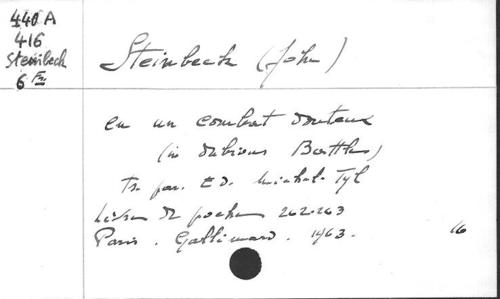 440 A
416
Steinbeck
6 Fr
Steinbeck (John)
en un combat douteux
(in dubious Battle)
Tr. par. Ed. Michel-Tyl
Livre de poche 262-263
Paris. Gallimard. 1963.
16